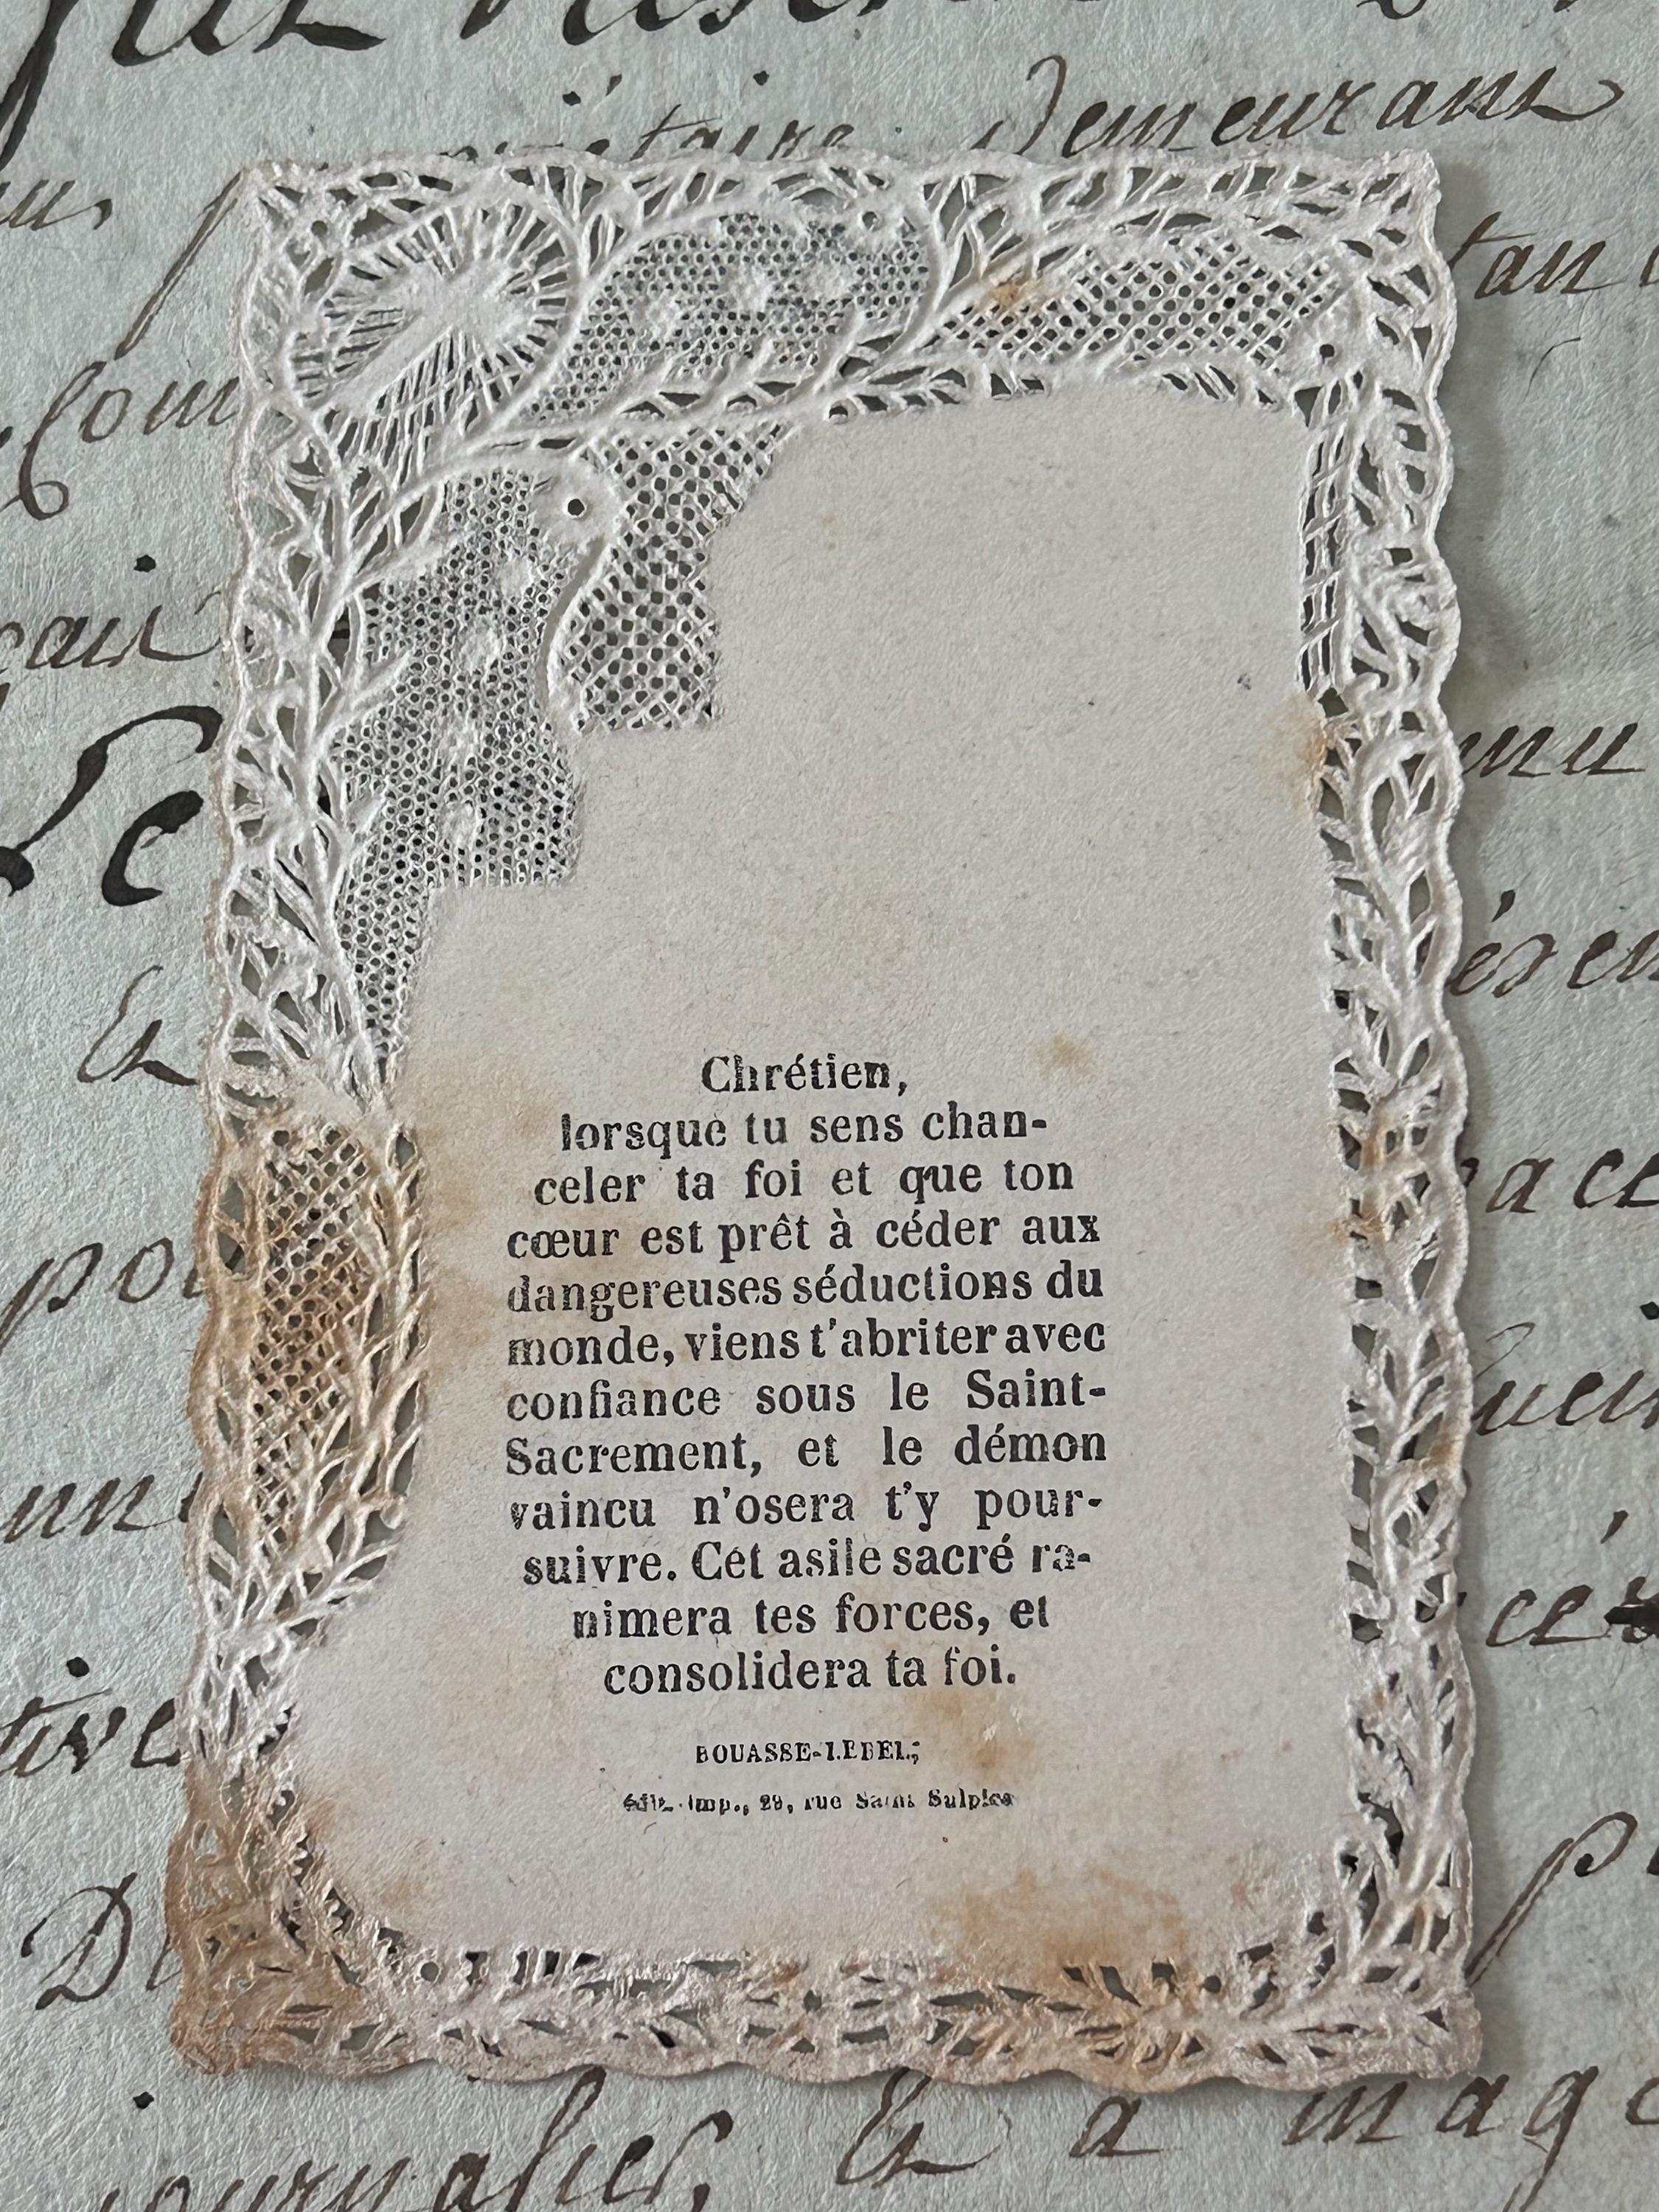 demeurant
Chrétien,
lorsque tu sens chan-
celer ta foi et que ton
cœur est prêt à céder aux
dangereuses séductions du
monde, viens t'abriter avec
confiance sous le Saint-
Sacrement, et le démon
vaincu n'osera t'y pour-
suivre. Cet asile sacré ra-
nimera tes forces, et
consolidera ta foi.
BOUASSE-LEBEL,
édit. imp., 29, rue Saint Sulpice
Et a